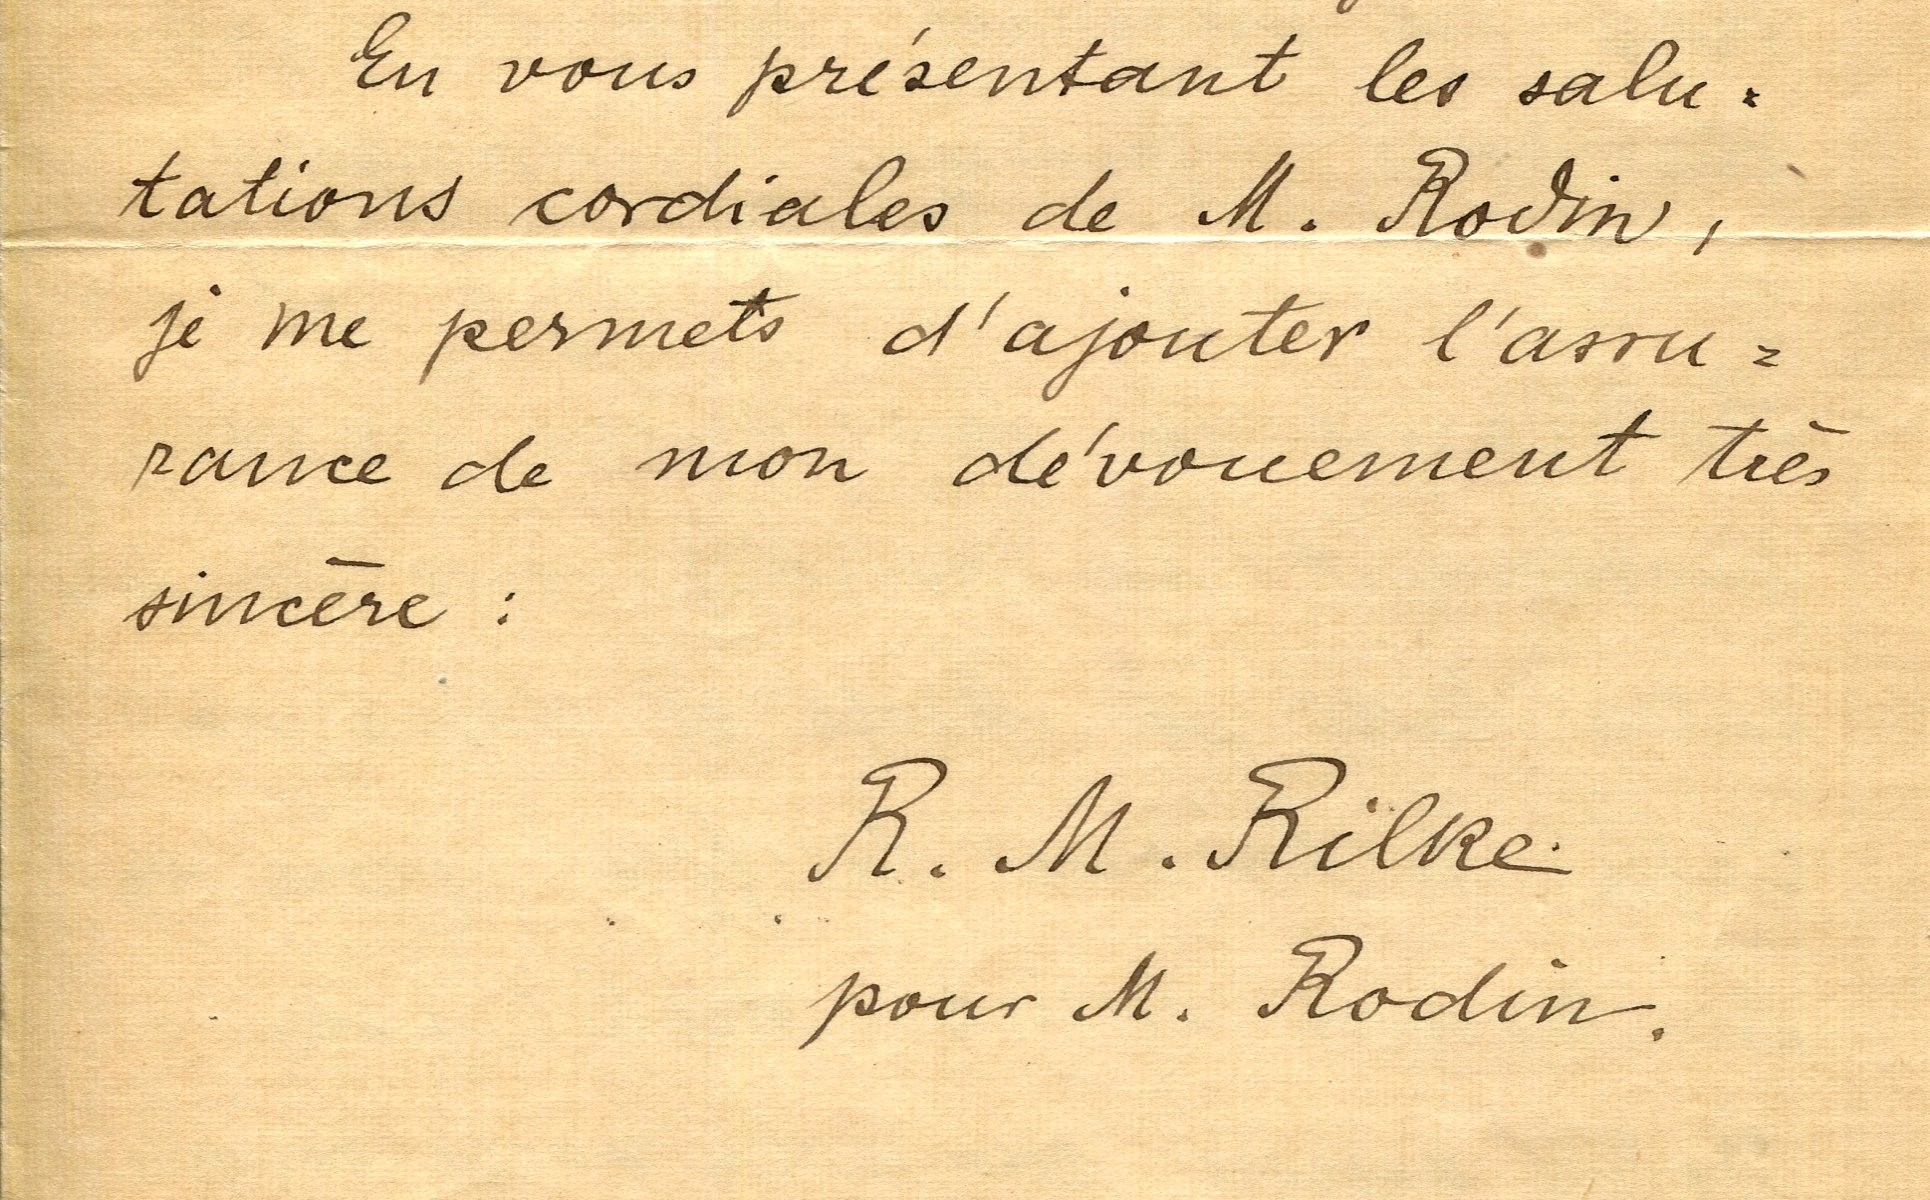 En vous présentant les salu=
tations cordiales de M. Rodin,
je me permets d'ajouter l'assu=
rance de mon dévouement très
sincère :
R. M. Rilke.
pour M. Rodin.